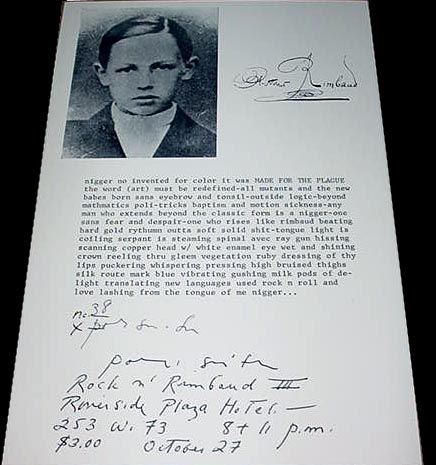 Arthur Rimbaud
nigger no invented for color it was MADE FOR THE PLAGUE
the word (art) must be redefined-all mutants and the new
babes born sans eyebrow and tonsil-outside logic-beyond
mathmatics poli-tricks baptism and motion sickness-any
man who extends beyond the classic form is a nigger-one
sans fear and despair-one who rises like rimbaud beating
hard gold rythumn outta soft solid shit-tongue light is
coiling serpant is steaming spinal avec ray gun hissing
scanning copper head w/ white enamel eye wet and shining
crown reeling thru gleem vegetation ruby dressing of thy
lips puckering whispering pressing high bruised thighs
silk route mark blue vibrating gushing milk pods of de-
light translating new languages used rock n roll and
love lashing from the tongue of me nigger...
no. 38
patti smith
Rock n' Rimbaud III
Riverside Plaza Hotel —
253 W. 73 8 + 11 p.m.
$3.00 October 27